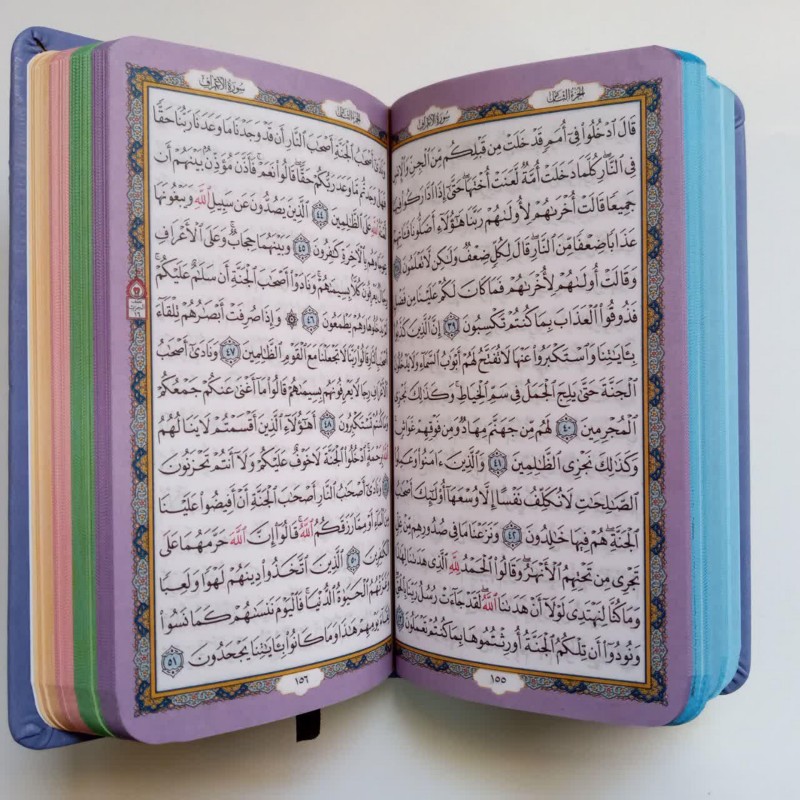 الجزء الثامن
سورة الأعراف
قَالَ ٱدْخُلُوا۟ فِىٓ أُمَمٍ قَدْ خَلَتْ مِن قَبْلِكُم مِّنَ ٱلْجِنِّ وَٱلْإِنسِ
فِى ٱلنَّارِ كُلَّمَا دَخَلَتْ أُمَّةٌ لَّعَنَتْ أُخْتَهَا حَتَّىٰٓ إِذَا ٱدَّارَكُوا۟ فِيهَا
جَمِيعًا قَالَتْ أُخْرَىٰهُمْ لِأُولَىٰهُمْ رَبَّنَا هَٰٓؤُلَآءِ أَضَلُّونَا فَـَٔاتِهِمْ
عَذَابًا ضِعْفًا مِّنَ ٱلنَّارِ قَالَ لِكُلٍّ ضِعْفٌ وَلَٰكِن لَّا تَعْلَمُونَ
وَقَالَتْ أُولَىٰهُمْ لِأُخْرَىٰهُمْ فَمَا كَانَ لَكُمْ عَلَيْنَا مِن فَضْلٍ
فَذُوقُوا۟ ٱلْعَذَابَ بِمَا كُنتُمْ تَكْسِبُونَ ٣٩ إِنَّ ٱلَّذِينَ كَذَّبُوا۟
بِـَٔايَٰتِنَا وَٱسْتَكْبَرُوا۟ عَنْهَا لَا تُفَتَّحُ لَهُمْ أَبْوَٰبُ ٱلسَّمَآءِ وَلَا يَدْخُلُونَ
ٱلْجَنَّةَ حَتَّىٰ يَلِجَ ٱلْجَمَلُ فِى سَمِّ ٱلْخِيَاطِ وَكَذَٰلِكَ نَجْزِى
ٱلْمُجْرِمِينَ ٤٠ لَهُم مِّن جَهَنَّمَ مِهَادٌ وَمِن فَوْقِهِمْ غَوَاشٍ
وَكَذَٰلِكَ نَجْزِى ٱلظَّٰلِمِينَ ٤١ وَٱلَّذِينَ ءَامَنُوا۟ وَعَمِلُوا۟
ٱلصَّٰلِحَٰتِ لَا نُكَلِّفُ نَفْسًا إِلَّا وُسْعَهَآ أُو۟لَٰٓئِكَ أَصْحَٰبُ
ٱلْجَنَّةِ هُمْ فِيهَا خَٰلِدُونَ ٤٢ وَنَزَعْنَا مَا فِى صُدُورِهِم مِّنْ غِلٍّ
تَجْرِى مِن تَحْتِهِمُ ٱلْأَنْهَٰرُ وَقَالُوا۟ ٱلْحَمْدُ لِلَّهِ ٱلَّذِى هَدَىٰنَا لِهَٰذَا
وَمَا كُنَّا لِنَهْتَدِىَ لَوْلَآ أَنْ هَدَىٰنَا ٱللَّهُ لَقَدْ جَآءَتْ رُسُلُ رَبِّنَا بِٱلْحَقِّ
وَنُودُوٓا۟ أَن تِلْكُمُ ٱلْجَنَّةُ أُورِثْتُمُوهَا بِمَا كُنتُمْ تَعْمَلُونَ
١٥٥
الجزء الثامن
سورة الأعراف
وَنَادَىٰٓ أَصْحَٰبُ ٱلْجَنَّةِ أَصْحَٰبَ ٱلنَّارِ أَن قَدْ وَجَدْنَا مَا وَعَدَنَا رَبُّنَا حَقًّا
فَهَلْ وَجَدتُّم مَّا وَعَدَ رَبُّكُمْ حَقًّا قَالُوا۟ نَعَمْ فَأَذَّنَ مُؤَذِّنٌۢ بَيْنَهُمْ أَن
لَّعْنَةُ ٱللَّهِ عَلَى ٱلظَّٰلِمِينَ ٤٤ ٱلَّذِينَ يَصُدُّونَ عَن سَبِيلِ ٱللَّهِ وَيَبْغُونَهَا
عِوَجًا وَهُم بِٱلْءَاخِرَةِ كَٰفِرُونَ ٤٥ وَبَيْنَهُمَا حِجَابٌ وَعَلَى ٱلْأَعْرَافِ
رِجَالٌ يَعْرِفُونَ كُلًّۢا بِسِيمَىٰهُمْ وَنَادَوْا۟ أَصْحَٰبَ ٱلْجَنَّةِ أَن سَلَٰمٌ عَلَيْكُمْ
لَمْ يَدْخُلُوهَا وَهُمْ يَطْمَعُونَ ٤٦ ۞ وَإِذَا صُرِفَتْ أَبْصَٰرُهُمْ تِلْقَآءَ
أَصْحَٰبِ ٱلنَّارِ قَالُوا۟ رَبَّنَا لَا تَجْعَلْنَا مَعَ ٱلْقَوْمِ ٱلظَّٰلِمِينَ ٤٧ وَنَادَىٰٓ أَصْحَٰبُ
ٱلْأَعْرَافِ رِجَالًا يَعْرِفُونَهُم بِسِيمَىٰهُمْ قَالُوا۟ مَآ أَغْنَىٰ عَنكُمْ جَمْعُكُمْ
وَمَا كُنتُمْ تَسْتَكْبِرُونَ ٤٨ أَهَٰٓؤُلَآءِ ٱلَّذِينَ أَقْسَمْتُمْ لَا يَنَالُهُمُ
ٱللَّهُ بِرَحْمَةٍ ٱدْخُلُوا۟ ٱلْجَنَّةَ لَا خَوْفٌ عَلَيْكُمْ وَلَآ أَنتُمْ تَحْزَنُونَ
وَنَادَىٰٓ أَصْحَٰبُ ٱلنَّارِ أَصْحَٰبَ ٱلْجَنَّةِ أَنْ أَفِيضُوا۟ عَلَيْنَا
مِنَ ٱلْمَآءِ أَوْ مِمَّا رَزَقَكُمُ ٱللَّهُ قَالُوٓا۟ إِنَّ ٱللَّهَ حَرَّمَهُمَا عَلَى
ٱلْكَٰفِرِينَ ٥٠ ٱلَّذِينَ ٱتَّخَذُوا۟ دِينَهُمْ لَهْوًا وَلَعِبًا
وَغَرَّتْهُمُ ٱلْحَيَوٰةُ ٱلدُّنْيَا فَٱلْيَوْمَ نَنسَىٰهُمْ كَمَا نَسُوا۟
لِقَآءَ يَوْمِهِمْ هَٰذَا وَمَا كَانُوا۟ بِـَٔايَٰتِنَا يَجْحَدُونَ ٥١
١٥٦